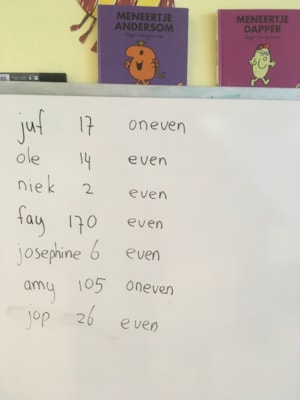 MENEERTJE
ANDERSOM
MENEERTJE
DAPPER
juf 17 oneven
ole 14 even
niek 2 even
fay 170 even
josephine 6 even
amy 105 oneven
jop 26 even